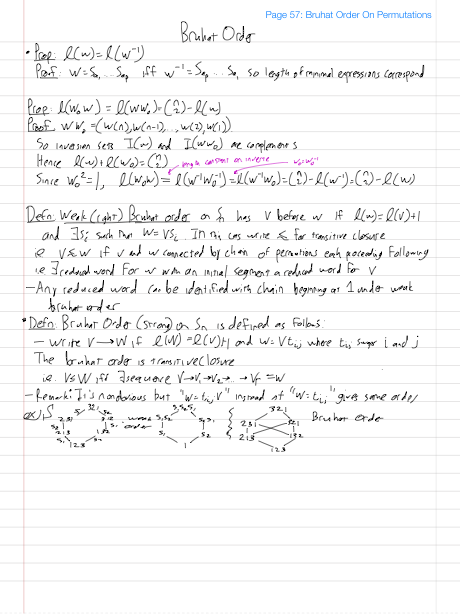 Page 57: Bruhat Order On Permutations
Bruhat Order
• Prop: l(w) = l(w⁻¹)
Proof: w = Sₐ₁ ... Sₐₚ iff w⁻¹ = Sₐₚ ... Sₐ₁ so length of minimal expressions correspond
Prop: l(w₀w) = l(ww₀) = (n 2) - l(w)
Proof: ww₀ = (w(n), w(n-1), ..., w(2), w(1))
So inversion sets I(w) and I(ww₀) are complements
Hence l(w) + l(ww₀) = (n 2)
length constant on inverse w₀=w₀⁻¹
Since w₀² = 1, l(w₀w) = l(w⁻¹w₀⁻¹) = l(w⁻¹w₀) = (n 2) - l(w⁻¹) = (n 2) - l(w)
Defn: Weak (right) Bruhat order on Sₙ has v before w if l(w) = l(v)+1
and ∃Sᵢ such that w = vSᵢ. In this case write ≤ for transitive closure
ie v ≤ w if v and w connected by chain of permutations each preceding following
i.e ∃ reduced word for w with an initial segment a reduced word for v
- Any reduced word can be identified with chain beginning at 1 under weak
bruhat order
• Defn: Bruhat Order (strong) on Sₙ is defined as follows:
- Write v → w if l(w) = l(v)+1 and w = v tᵢⱼ where tᵢⱼ swaps i and j
The bruhat order is transitive closure
ie. v ≤ w iff ∃ sequence v → v₁ → v₂ → ... → vᵣ = w
- Remark: It's nonobvious but "w = tᵢⱼ v" instead of "w = v tᵢⱼ" gives same order
ex)
321
231 312
213 132
123
weak order
S₁ S₂
1
321
231 312
213 132
123
Bruhat Order